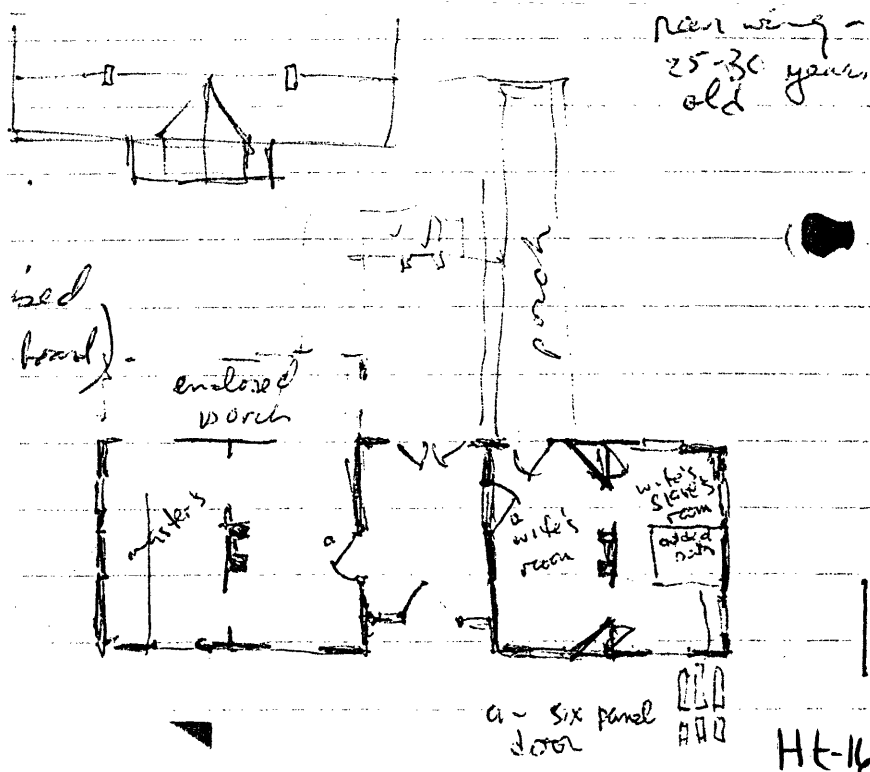 rear wing -
25-30 years
old
porch
ised
board).
enclosed
porch
master's
a
a
wife's
room
wife's
slave's
room
added
bath
a - six panel
door
Ht-16